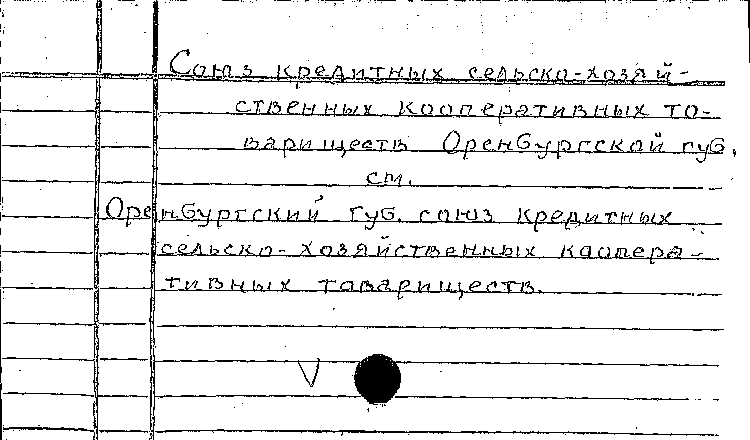 Союз кредитных сельско-хозяй-
ственных кооперативных то-
вариществ Оренбургской губ.
см.
Оренбургский губ. союз кредитных
сельско-хозяйственных коопера-
тивных товариществ.